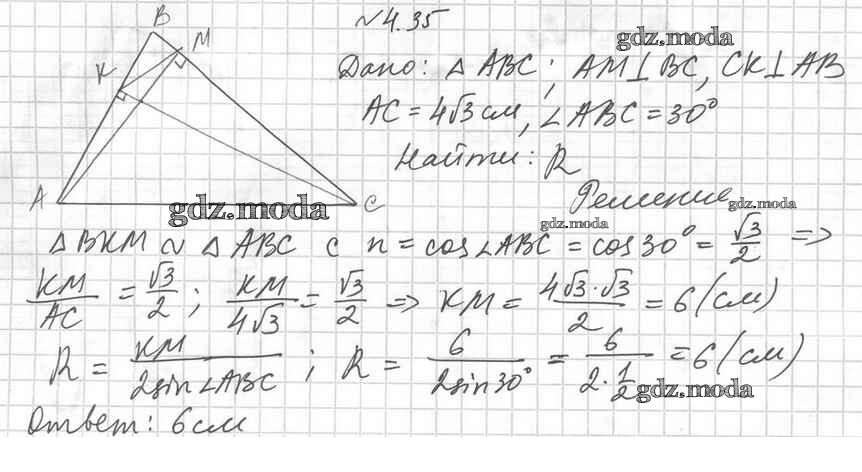 №4.35
gdz.moda
B
M
K
A
C
Дано: △ ABC; AM⊥BC, CK⊥AB
AC = 4√3 см, ∠ABC = 30°
Найти: R
gdz.moda
Решение
gdz.moda
gdz.moda
△BKM ~ △ABC с n = cos∠ABC = cos30° = √3/2 =>
KM/AC = √3/2; KM/4√3 = √3/2 => KM = 4√3·√3/2 = 6 (см)
R = KM/2sin∠ABC; R = 6/2sin30° = 6/2·1/2 = 6 (см)
gdz.moda
Ответ: 6см